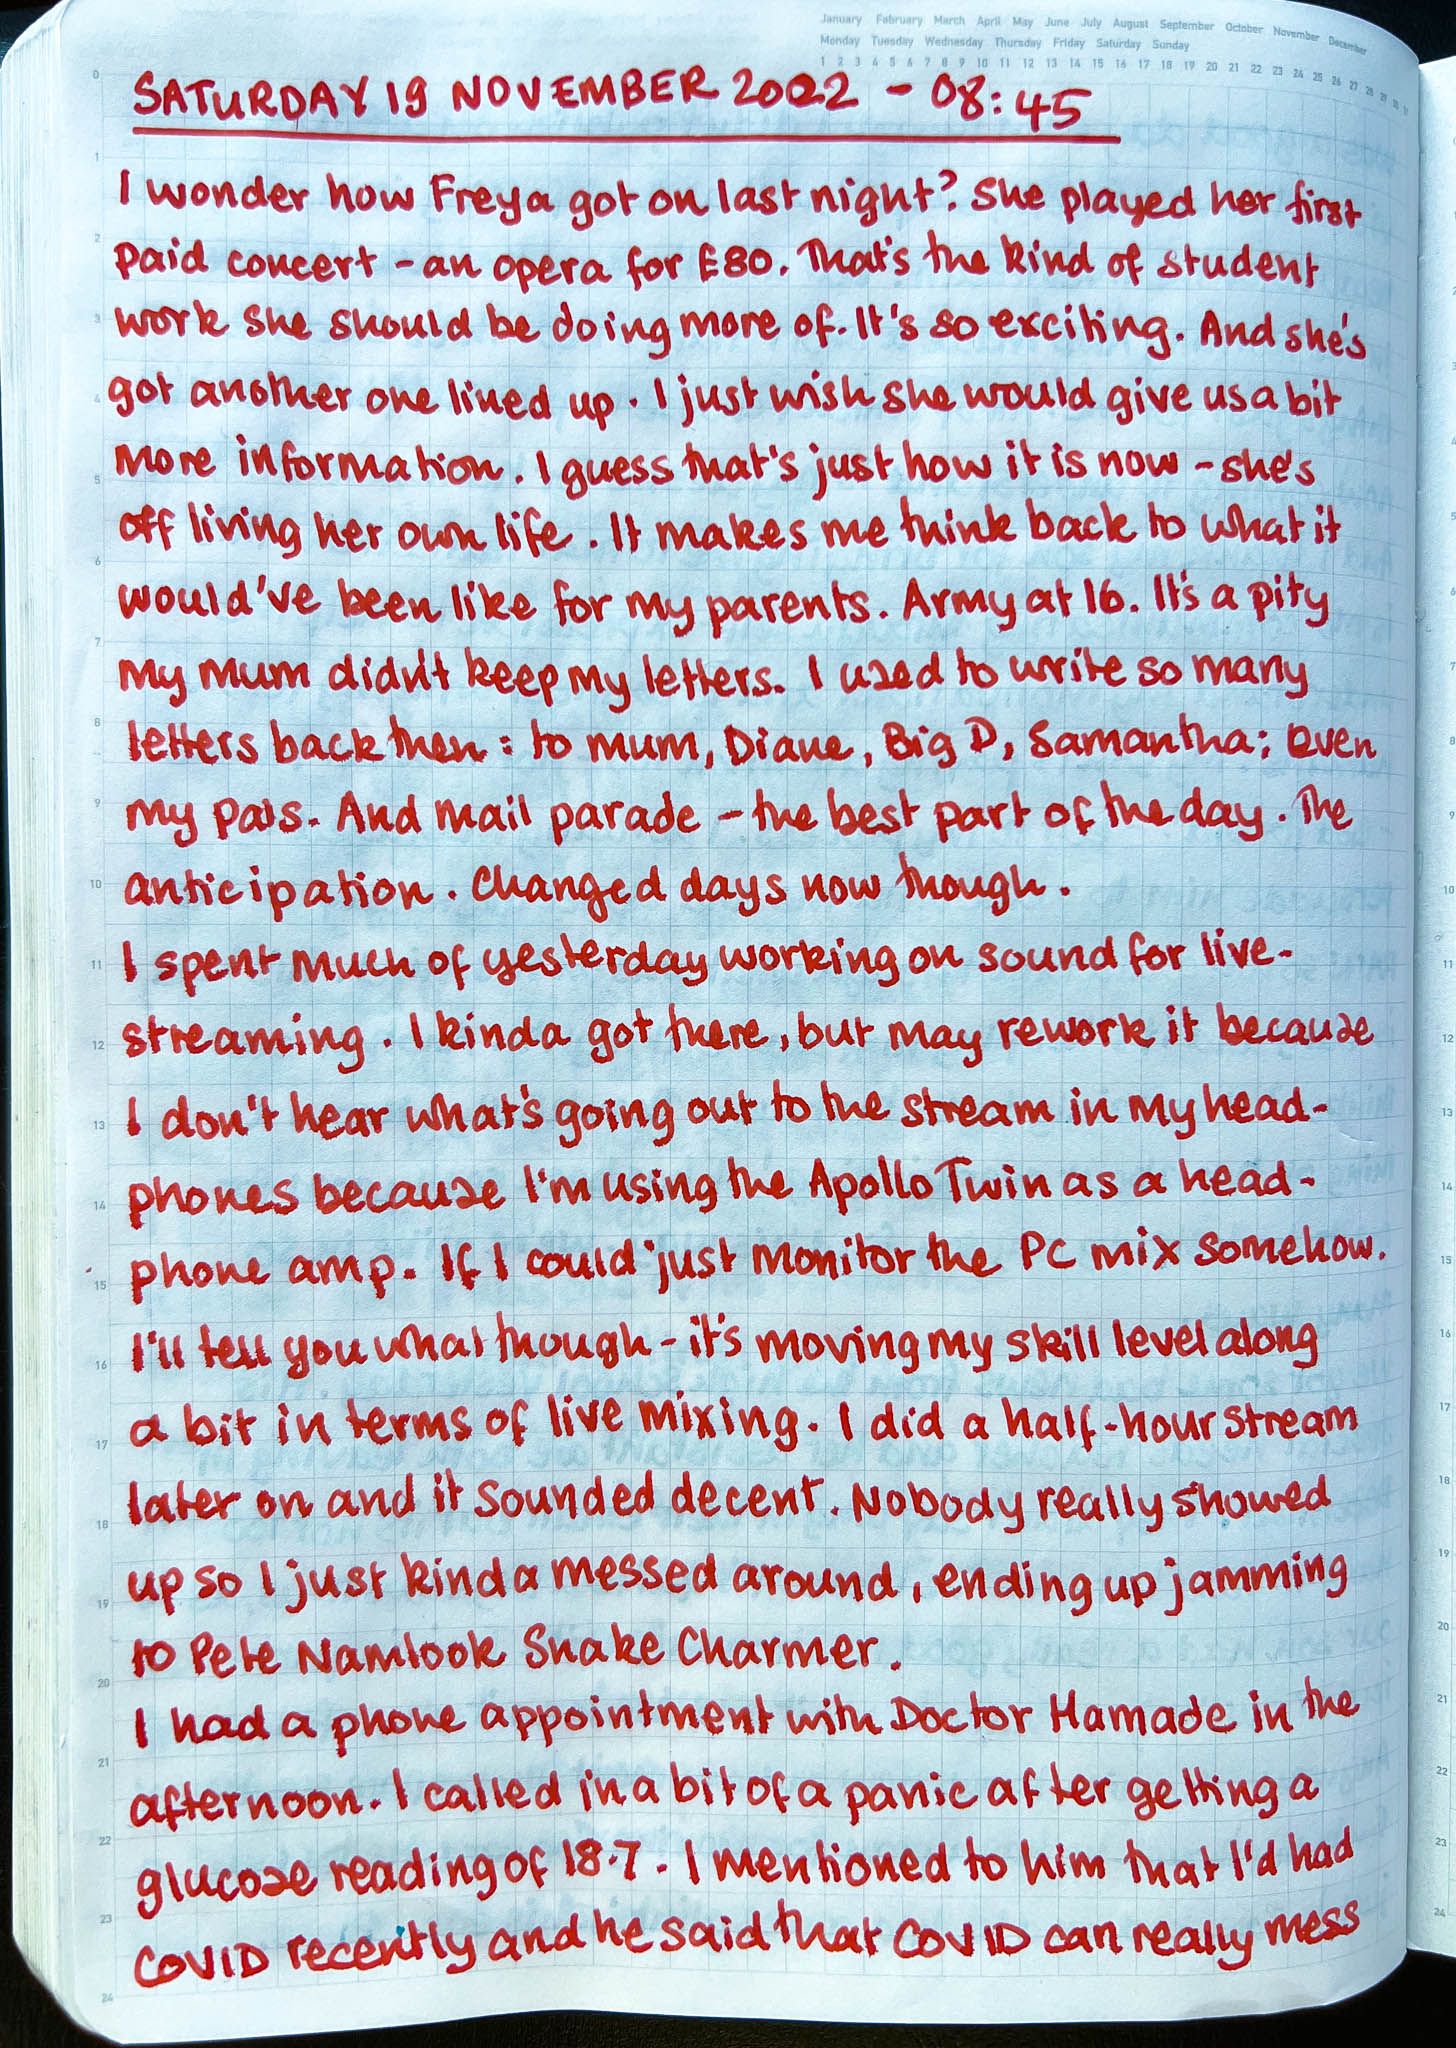 January February March April May June July August September October November December
Monday Tuesday Wednesday Thursday Friday Saturday Sunday
1 2 3 4 5 6 7 8 9 10 11 12 13 14 15 16 17 18 19 20 21 22 23 24 25 26 27 28 29 30 31
SATURDAY 19 NOVEMBER 2022 - 08:45
I wonder how Freya got on last night? She played her first
paid concert - an opera for £80. That's the kind of student
work she should be doing more of. It's so exciting. And she's
got another one lined up. I just wish she would give us a bit
more information. I guess that's just how it is now - she's
off living her own life. It makes me think back to what it
would've been like for my parents. Army at 16. It's a pity
my mum didn't keep my letters. I used to write so many
letters back then: to mum, Diane, Big D, Samantha; Even
my pals. And mail parade - the best part of the day. The
anticipation. Changed days now though.
I spent much of yesterday working on sound for live-
streaming. I kinda got there, but may rework it because
I don't hear what's going out to the stream in my head-
phones because I'm using the Apollo Twin as a head-
phone amp. If I could just monitor the PC mix somehow.
I'll tell you what though - it's moving my skill level along
a bit in terms of live mixing. I did a half-hour stream
later on and it sounded decent. Nobody really showed
up so I just kinda messed around, ending up jamming
to Pete Namlook Snake Charmer.
I had a phone appointment with Doctor Hamade in the
afternoon. I called in a bit of a panic after getting a
glucose reading of 18.7. I mentioned to him that I'd had
COVID recently and he said that COVID can really mess